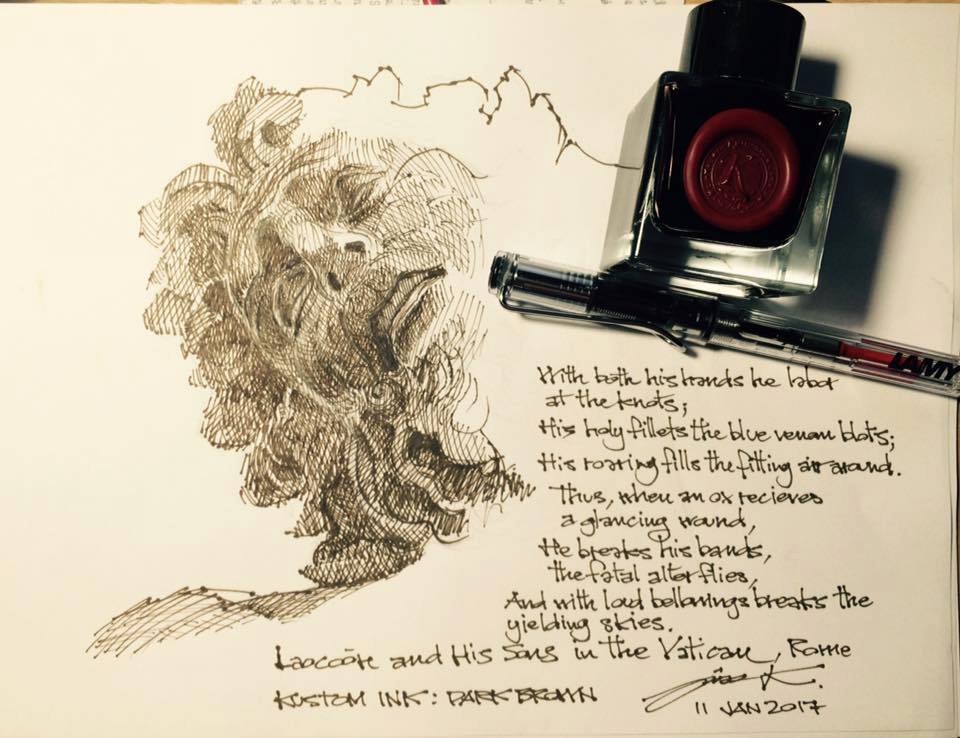 LAMY
With both his hands he labor
at the knots;
His holy fillets the blue venom blots;
His roaring fills the flitting air around.
Thus, when an ox recieves
a glancing wound,
He breaks his bands,
the fatal alter flies,
And with loud bellowings breaks the
yielding skies.
Laocoön and His Sons in the Vatican, Rome
KUSTOM INK: DARK BROWN
11 JAN 2017